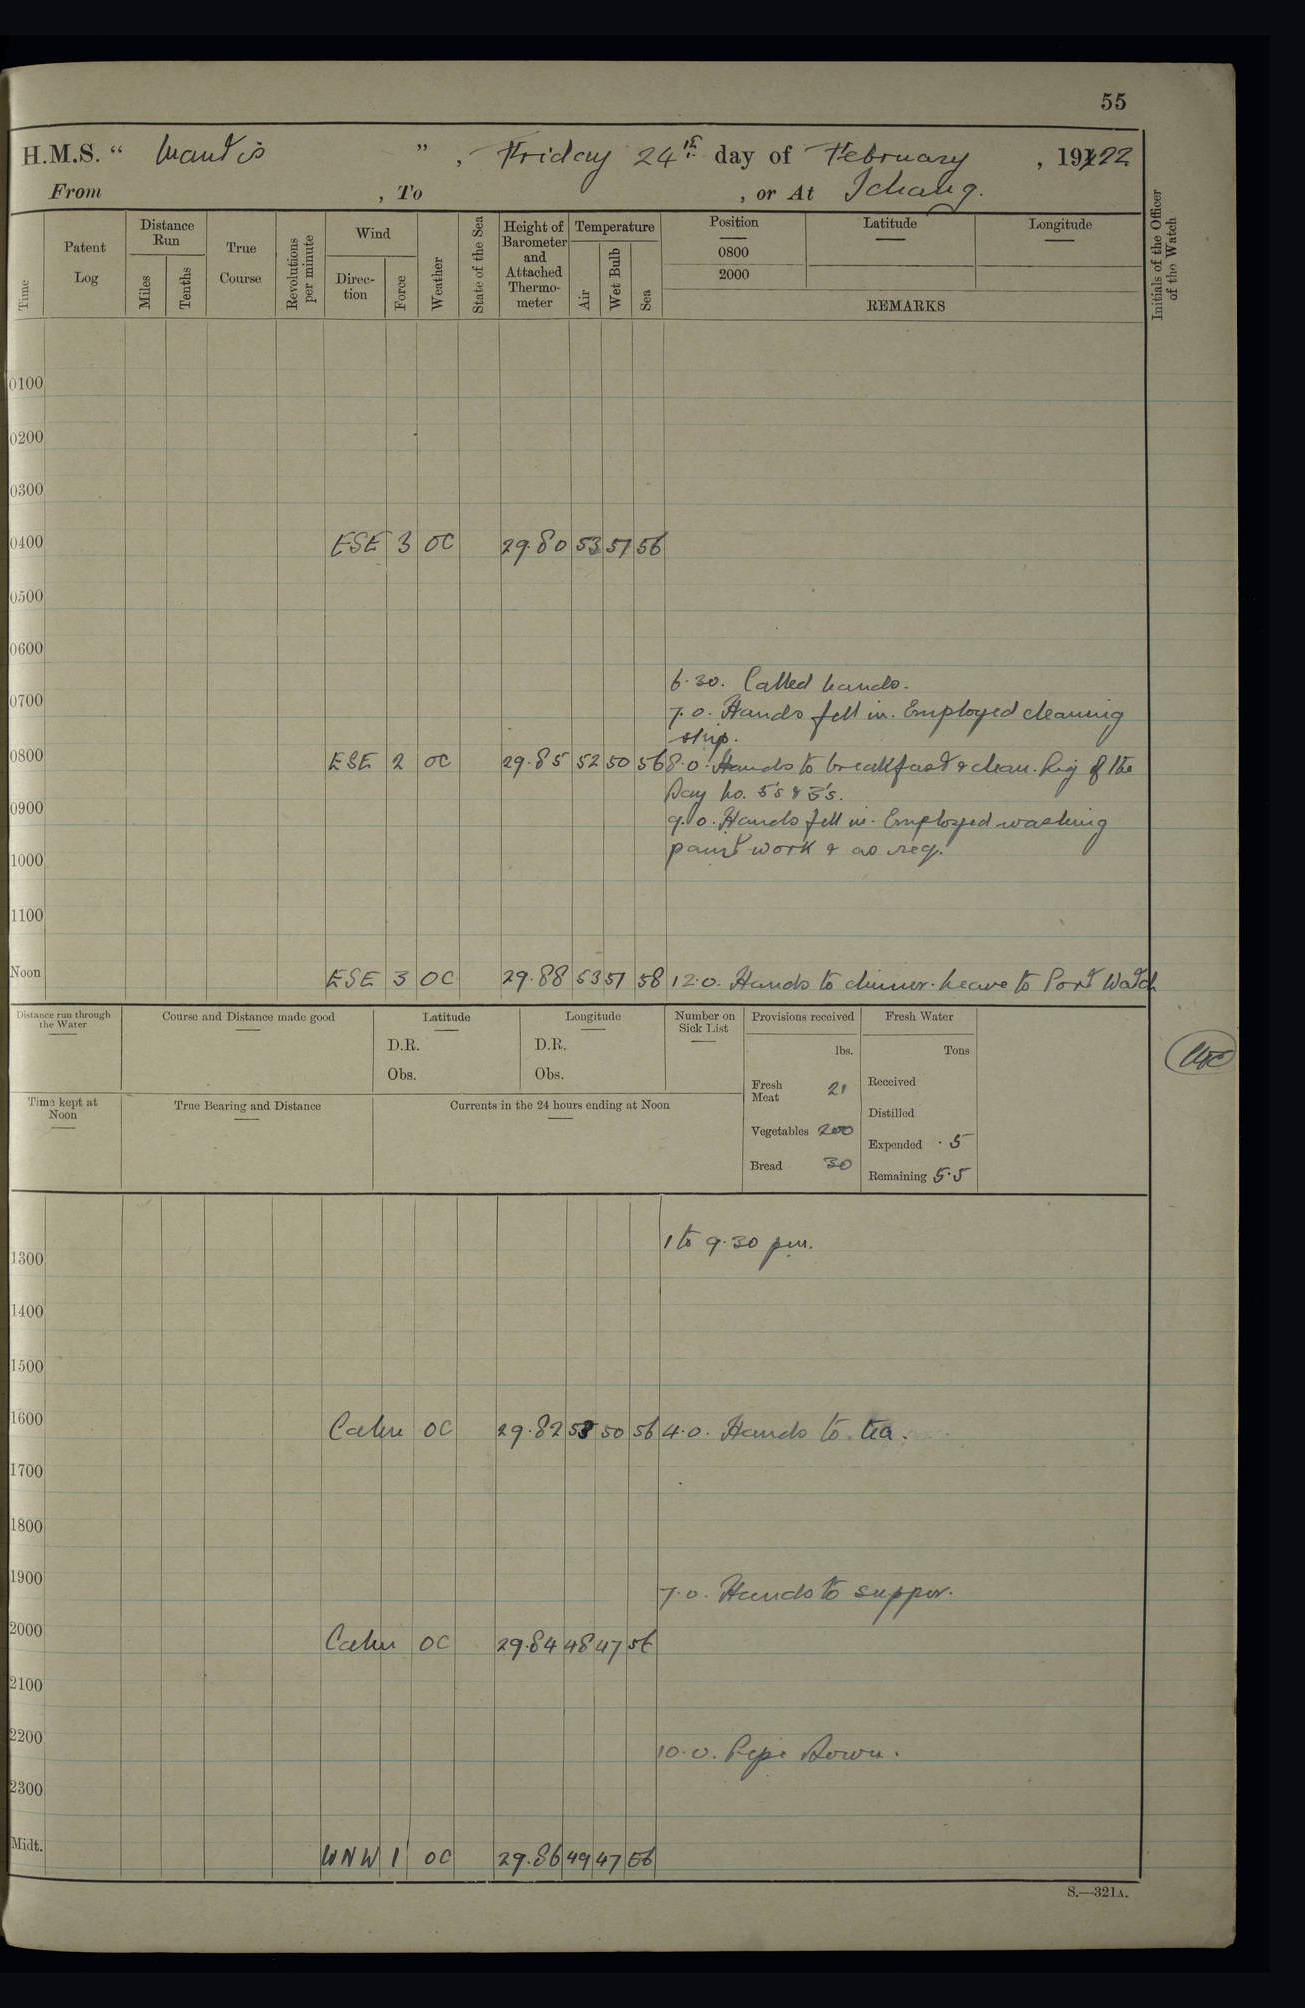 55
H.M.S. “ Mantis ” , Friday 24th day of February , 1922
From , To , or At Ichang.
Time
Patent Log
Distance Run
Miles
Tenths
True Course
Revolutions per minute
Wind
Direction
Force
Weather
State of the Sea
Height of Barometer and Attached Thermometer
Temperature
Air
Wet Bulb
Sea
Position
0800
2000
Latitude
Longitude
REMARKS
Initials of the Officer of the Watch
0100
0200
0300
0400 ESE 3 OC 29.80 53 51 56
0500
0600
6.30. Called hands.
0700 7.0. Hands fell in. Employed cleaning
ship.
0800 ESE 2 OC 29.85 52 50 56 8.0. Hands to breakfast & clean. Rig of the
Day No. 5's & 3's.
0900 9.0. Hands fell in. Employed washing
paint work & as req.
1000
1100
Noon ESE 3 OC 29.88 53 51 58 12.0. Hands to dinner. Leave to Port Watch
Distance run through the Water
Course and Distance made good
Latitude
D.R.
Obs.
Longitude
D.R.
Obs.
Number on Sick List
Provisions received
lbs.
Fresh Meat 21
Vegetables 200
Bread 30
Fresh Water
Tons
Received
Distilled
Expended .5
Remaining 5.5
Time kept at Noon
True Bearing and Distance
Currents in the 24 hours ending at Noon
1 to 9.30 pm.
1300
1400
1500
1600 Calm OC 29.82 50 56 4.0. Hands to tea.
1700
1800
1900 7.0. Hands to supper.
2000 Calm OC 29.84 48 47 56
2100
2200 10.0. Pipe Down.
2300
Midt. WNW 1 OC 29.86 49 47 56
S.—321A.